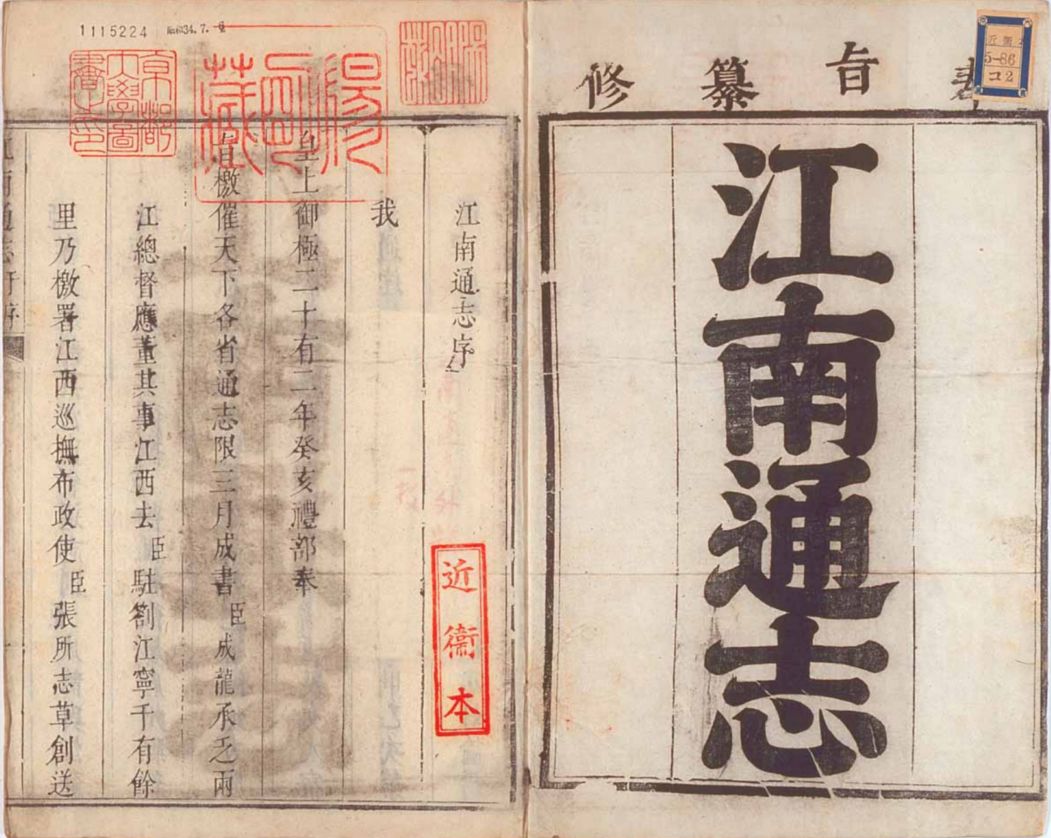 旨纂修
5-86
コ2
江南通志
1115224
陽明藏
京都大學圖書之印
江南通志序
近衞本
我
皇上御極二十有二年癸亥禮部奉
旨檄催天下各省通志限三月成書臣成龍承乏兩
江總督應董其事江西去臣駐劄江寧千有餘
里乃檄署江西巡撫布政使臣張所志草創送
江南通志序